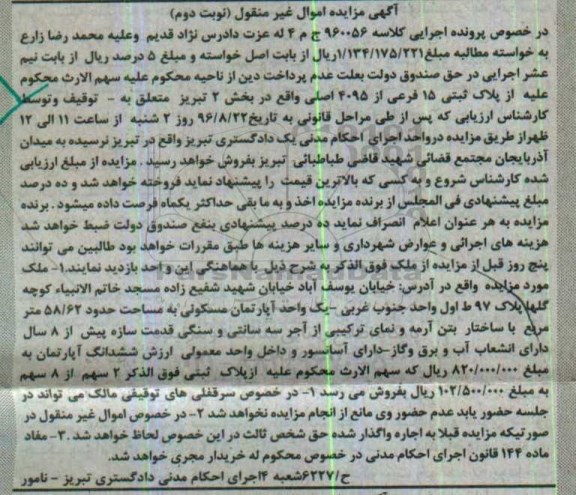 آگهی مزایده اموال غیر منقول (نوبت دوم)
در خصوص پرونده اجرایی کلاسه ۹۶۰۰۵۶ ج م ۴ له عزت دادرس نژاد قدیم وعلیه محمد رضا زارع
به خواسته مطالبه مبلغ۱/۱۳۴/۱۷۵/۲۲۱ریال از بابت اصل خواسته و مبلغ ۵ درصد ریال از بابت نیم
عشر اجرایی در حق صندوق دولت بعلت عدم پرداخت دین از ناحیه محکوم علیه سهم الارث محکوم
علیه از پلاک ثبتی ۱۵ فرعی از ۴۰۹۵ اصلی واقع در بخش ۲ تبریز متعلق به - توقیف وتوسط
کارشناس ارزیابی که پس از طی مراحل قانونی به تاریخ۹۶/۸/۲۲ روز ۲ شنبه از ساعت ۱۱ الی ۱۲
ظهراز طریق مزایده درواحد اجرای احکام مدنی یک دادگستری تبریز واقع در تبریز نرسیده به میدان
آذربایجان مجتمع قضائی شهید قاضی طباطبائی تبریز بفروش خواهد رسید . مزایده از مبلغ ارزیابی
شده کارشناس شروع و به کسی که بالاترین قیمت را پیشنهاد نماید فروخته خواهد شد و ده درصد
مبلغ پیشنهادی فی المجلس از برنده مزایده اخذ و به ما بقی حداکثر یکماه فرصت داده میشود . برنده
مزایده به هر عنوان اعلام انصراف نماید ده درصد پیشنهادی بنفع صندوق دولت ضبط خواهد شد
هزینه های اجرائی و عوارض شهرداری و سایر هزینه ها طبق مقررات خواهد بود طالبین می توانند
پنج روز قبل از مزایده از ملک فوق الذکر به شرح ذیل باهماهنگی این واحد بازدید نمایند.۱- ملک
مورد مزایده واقع در آدرس: خیابان یوسف آباد خیابان شهید شفیع زاده مسجد خاتم الانبیاء کوچه
گلها پلاک ۹۷ ط اول واحد جنوب غربی -یک واحد آپارتمان مسکونی به مساحت حدود ۵۸/۶۲ متر
مربع با ساختار بتن آرمه و نمای ترکیبی از آجر سه سانتی و سنگی قدمت سازه بیش از ۸ سال
دارای انشعاب آب و برق وگاز-دارای آسانسور و داخل واحد معمولی ارزش ششدانگ آپارتمان به
مبلغ ۸۲۰/۰۰۰/۰۰۰ ریال که سهم الارث محکوم علیه ازپلاک ثبتی فوق الذکر ۲ سهم از ۸ سهم
به مبلغ ۱۰۲/۵۰۰/۰۰۰ ریال بفروش می رسد ۱- در خصوص سرقفلی های توقیفی مالک می تواند در
جلسه حضور یابد عدم حضور وی مانع از انجام مزایده نخواهد شد ۲- در خصوص اموال غیر منقول در
صورتیکه مزایده قبلا به اجاره واگذار شده حق شخص ثالث در این خصوص لحاظ خواهد شد .۳- مفاد
ماده ۱۴۴ قانون اجرای احکام مدنی در خصوص محکوم له خریدار مجری خواهد شد.
ح/۶۲۲۷شعبه ۴اجرای احکام مدنی دادگستری تبریز - نامور